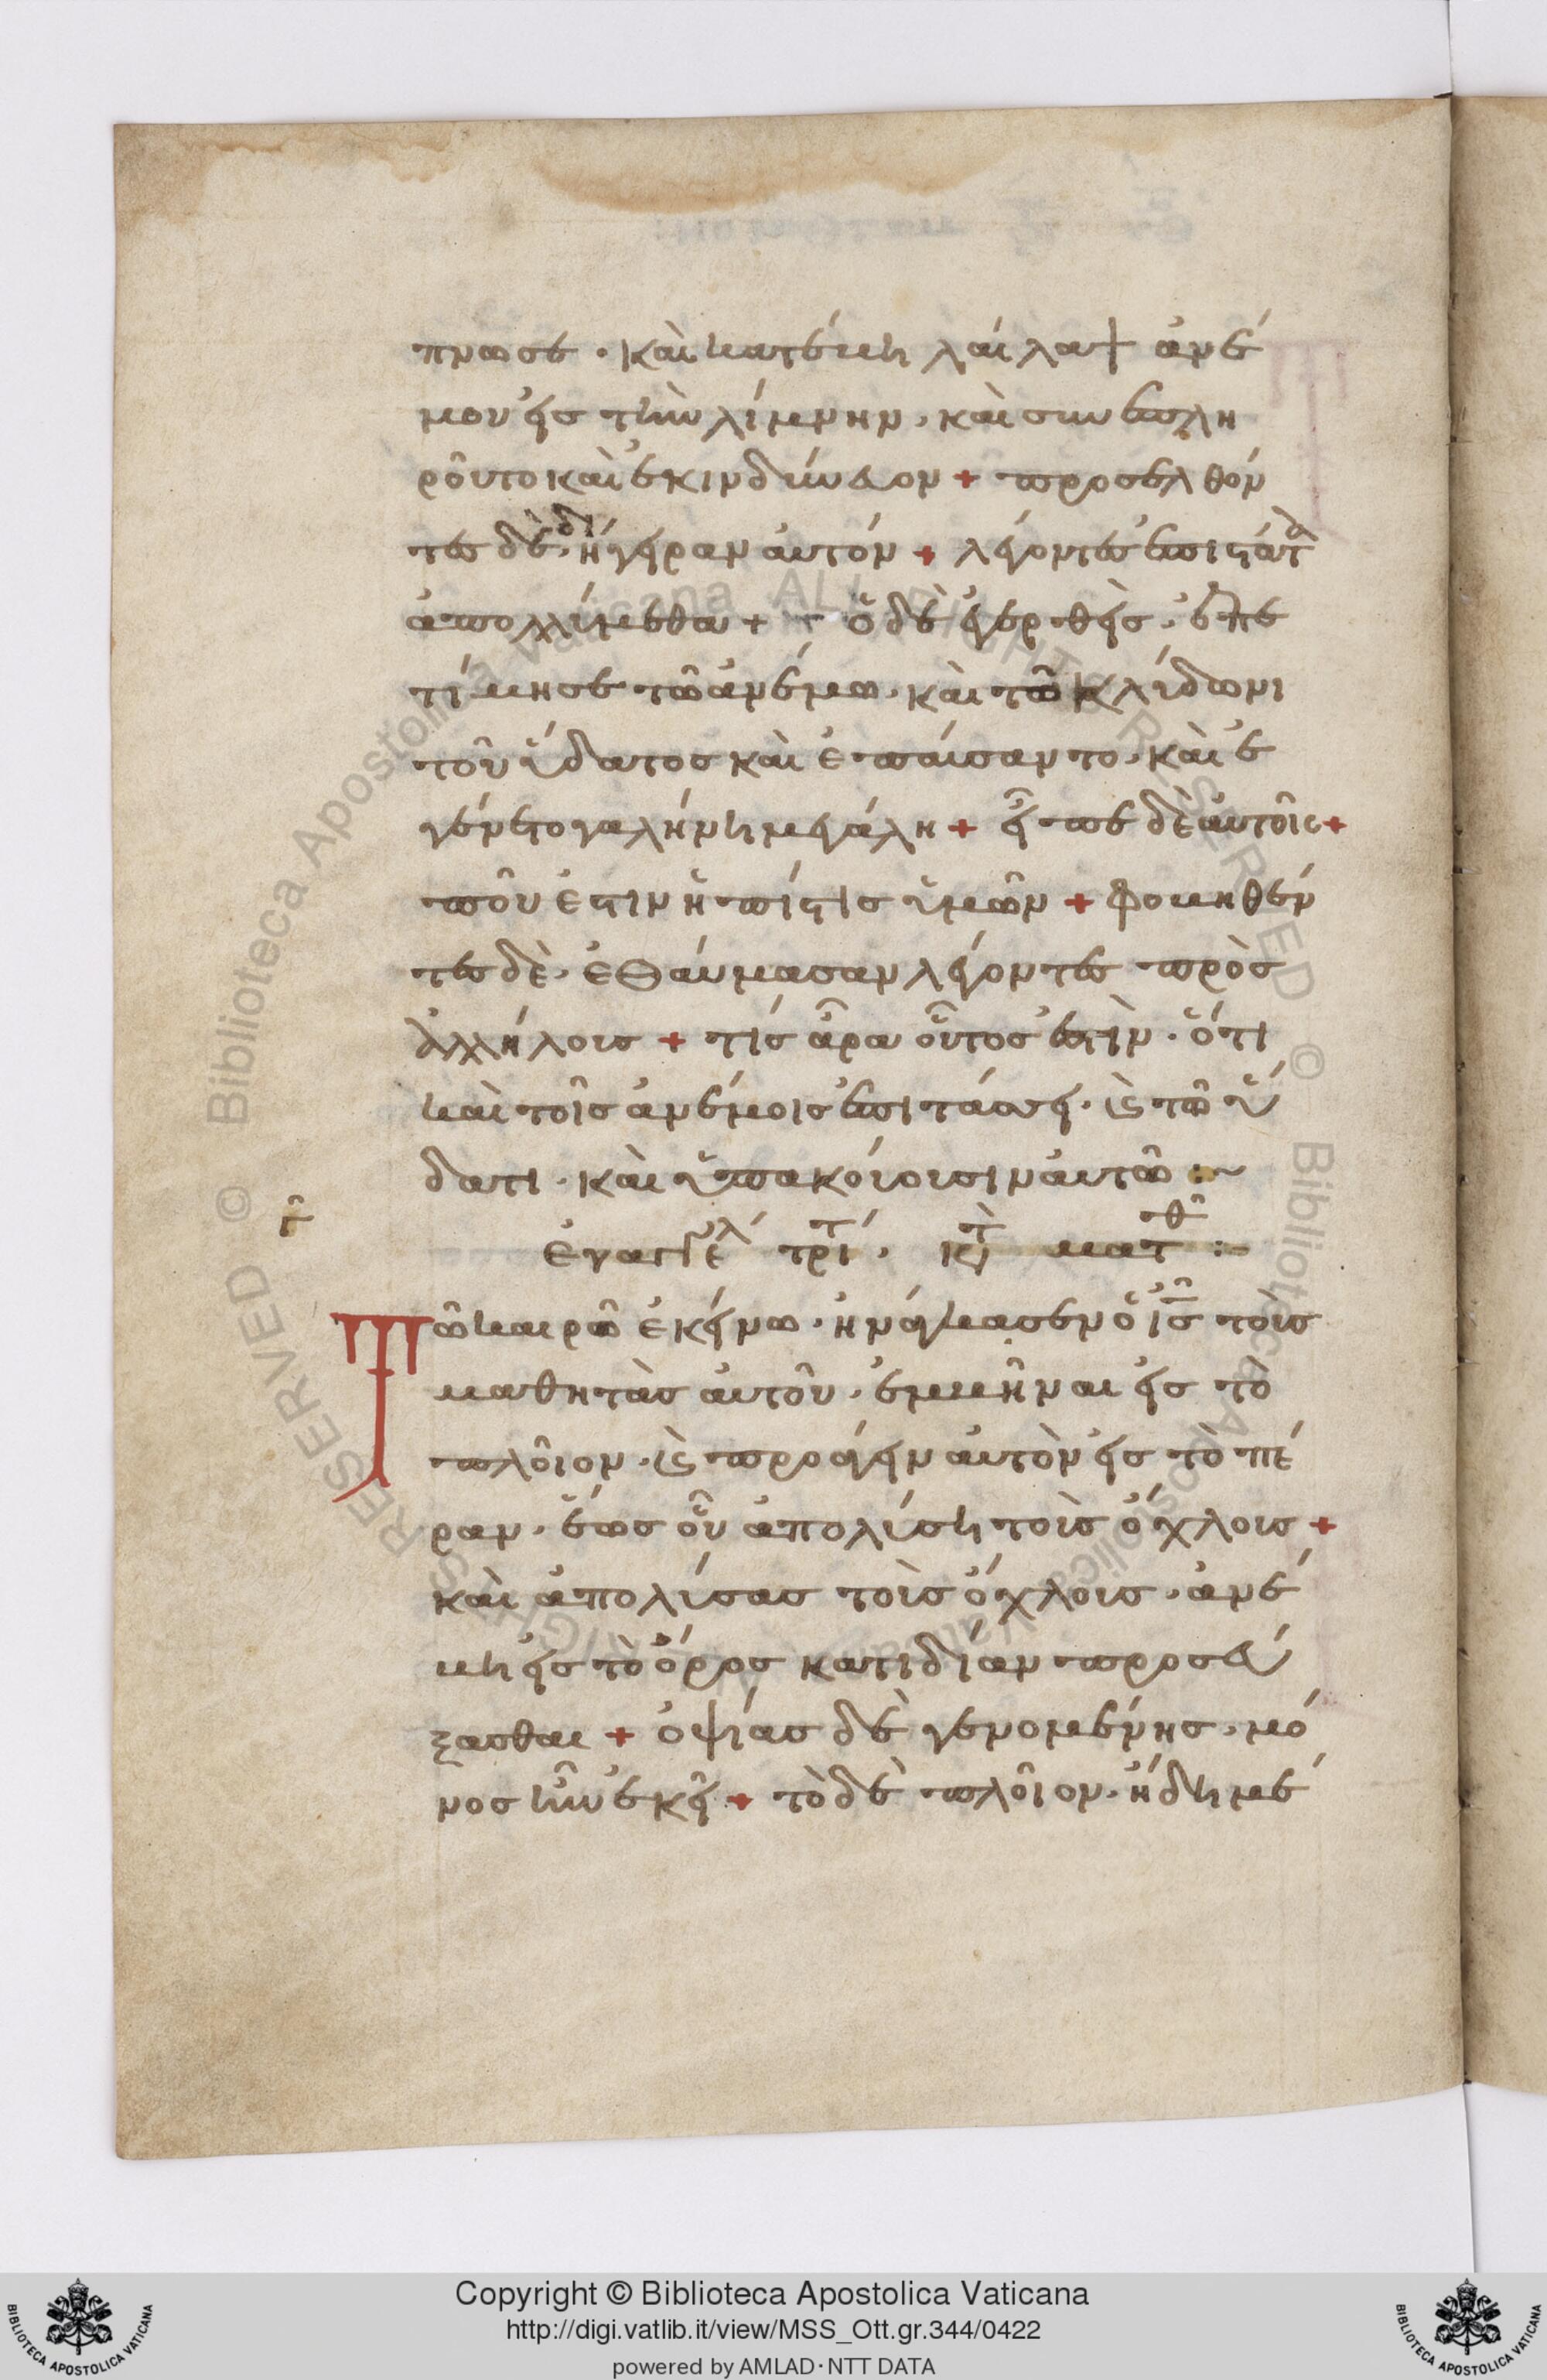 πνωσε · καὶ κατέβη λαίλαψ ἀνέ
μου εἰς τὴν λίμνην, καὶ συνεπλη
ροῦντο καὶ ἐκινδύνευον + προσελθόν
τες δὲ, διήγειραν αὐτόν + λέγοντες ἐπιστάτα
ἀπολλύμεθα + ὁ δὲ ἐγερθεὶς, ἐπε
τίμησε τῶ ἀνέμω, καὶ τῶ κλύδωνι
τοῦ ὕδατος καὶ ἐπαύσαντο, καὶ ἐ
γένετο γαλήνη μεγάλη + εἶπε δὲ αὐτοῖς +
ποῦ ἐστιν ἡ πίστις ὑμῶν + φοβηθέν
τες δὲ, ἐθαύμασαν λέγοντες πρὸς
ἀλλήλους + τίς ἄρα οὗτος ἐστὶν, ὅτι
καὶ τοῖς ἀνέμοις ἐπιτάσσει, ϗ τῶ ὕ
δατι, καὶ ὑπακούουσιν αὐτῶ :~
τ̂
Ἐυαγγέλ τρί, κτ ματθ :~
Τῶ καιρῶ ἐκείνω, ἠνάγκασεν ὁ ις τοὺς
μαθητὰς αὐτοῦ, ἐμβῆναι εἰς τὸ
πλοῖον, ϗ προάγειν αὐτὸν εἰς τὸ πέ
ραν, ἕως οὗ ἀπολύση τοὺς ὄχλους +
καὶ ἀπολύσας τοὺς ὄχλους, ἀνέ
βη εἰς τὸ ὄρος κατιδίαν προσεύ
ξασθαι + ὀψίας δὲ γενομένης, μό
νος ἦν ἐκεῖ + τὸ δὲ πλοῖον, ἤδη μέ
Copyright © Biblioteca Apostolica Vaticana
http://digi.vatlib.it/view/MSS_Ott.gr.344/0422
powered by AMLAD·NTT DATA